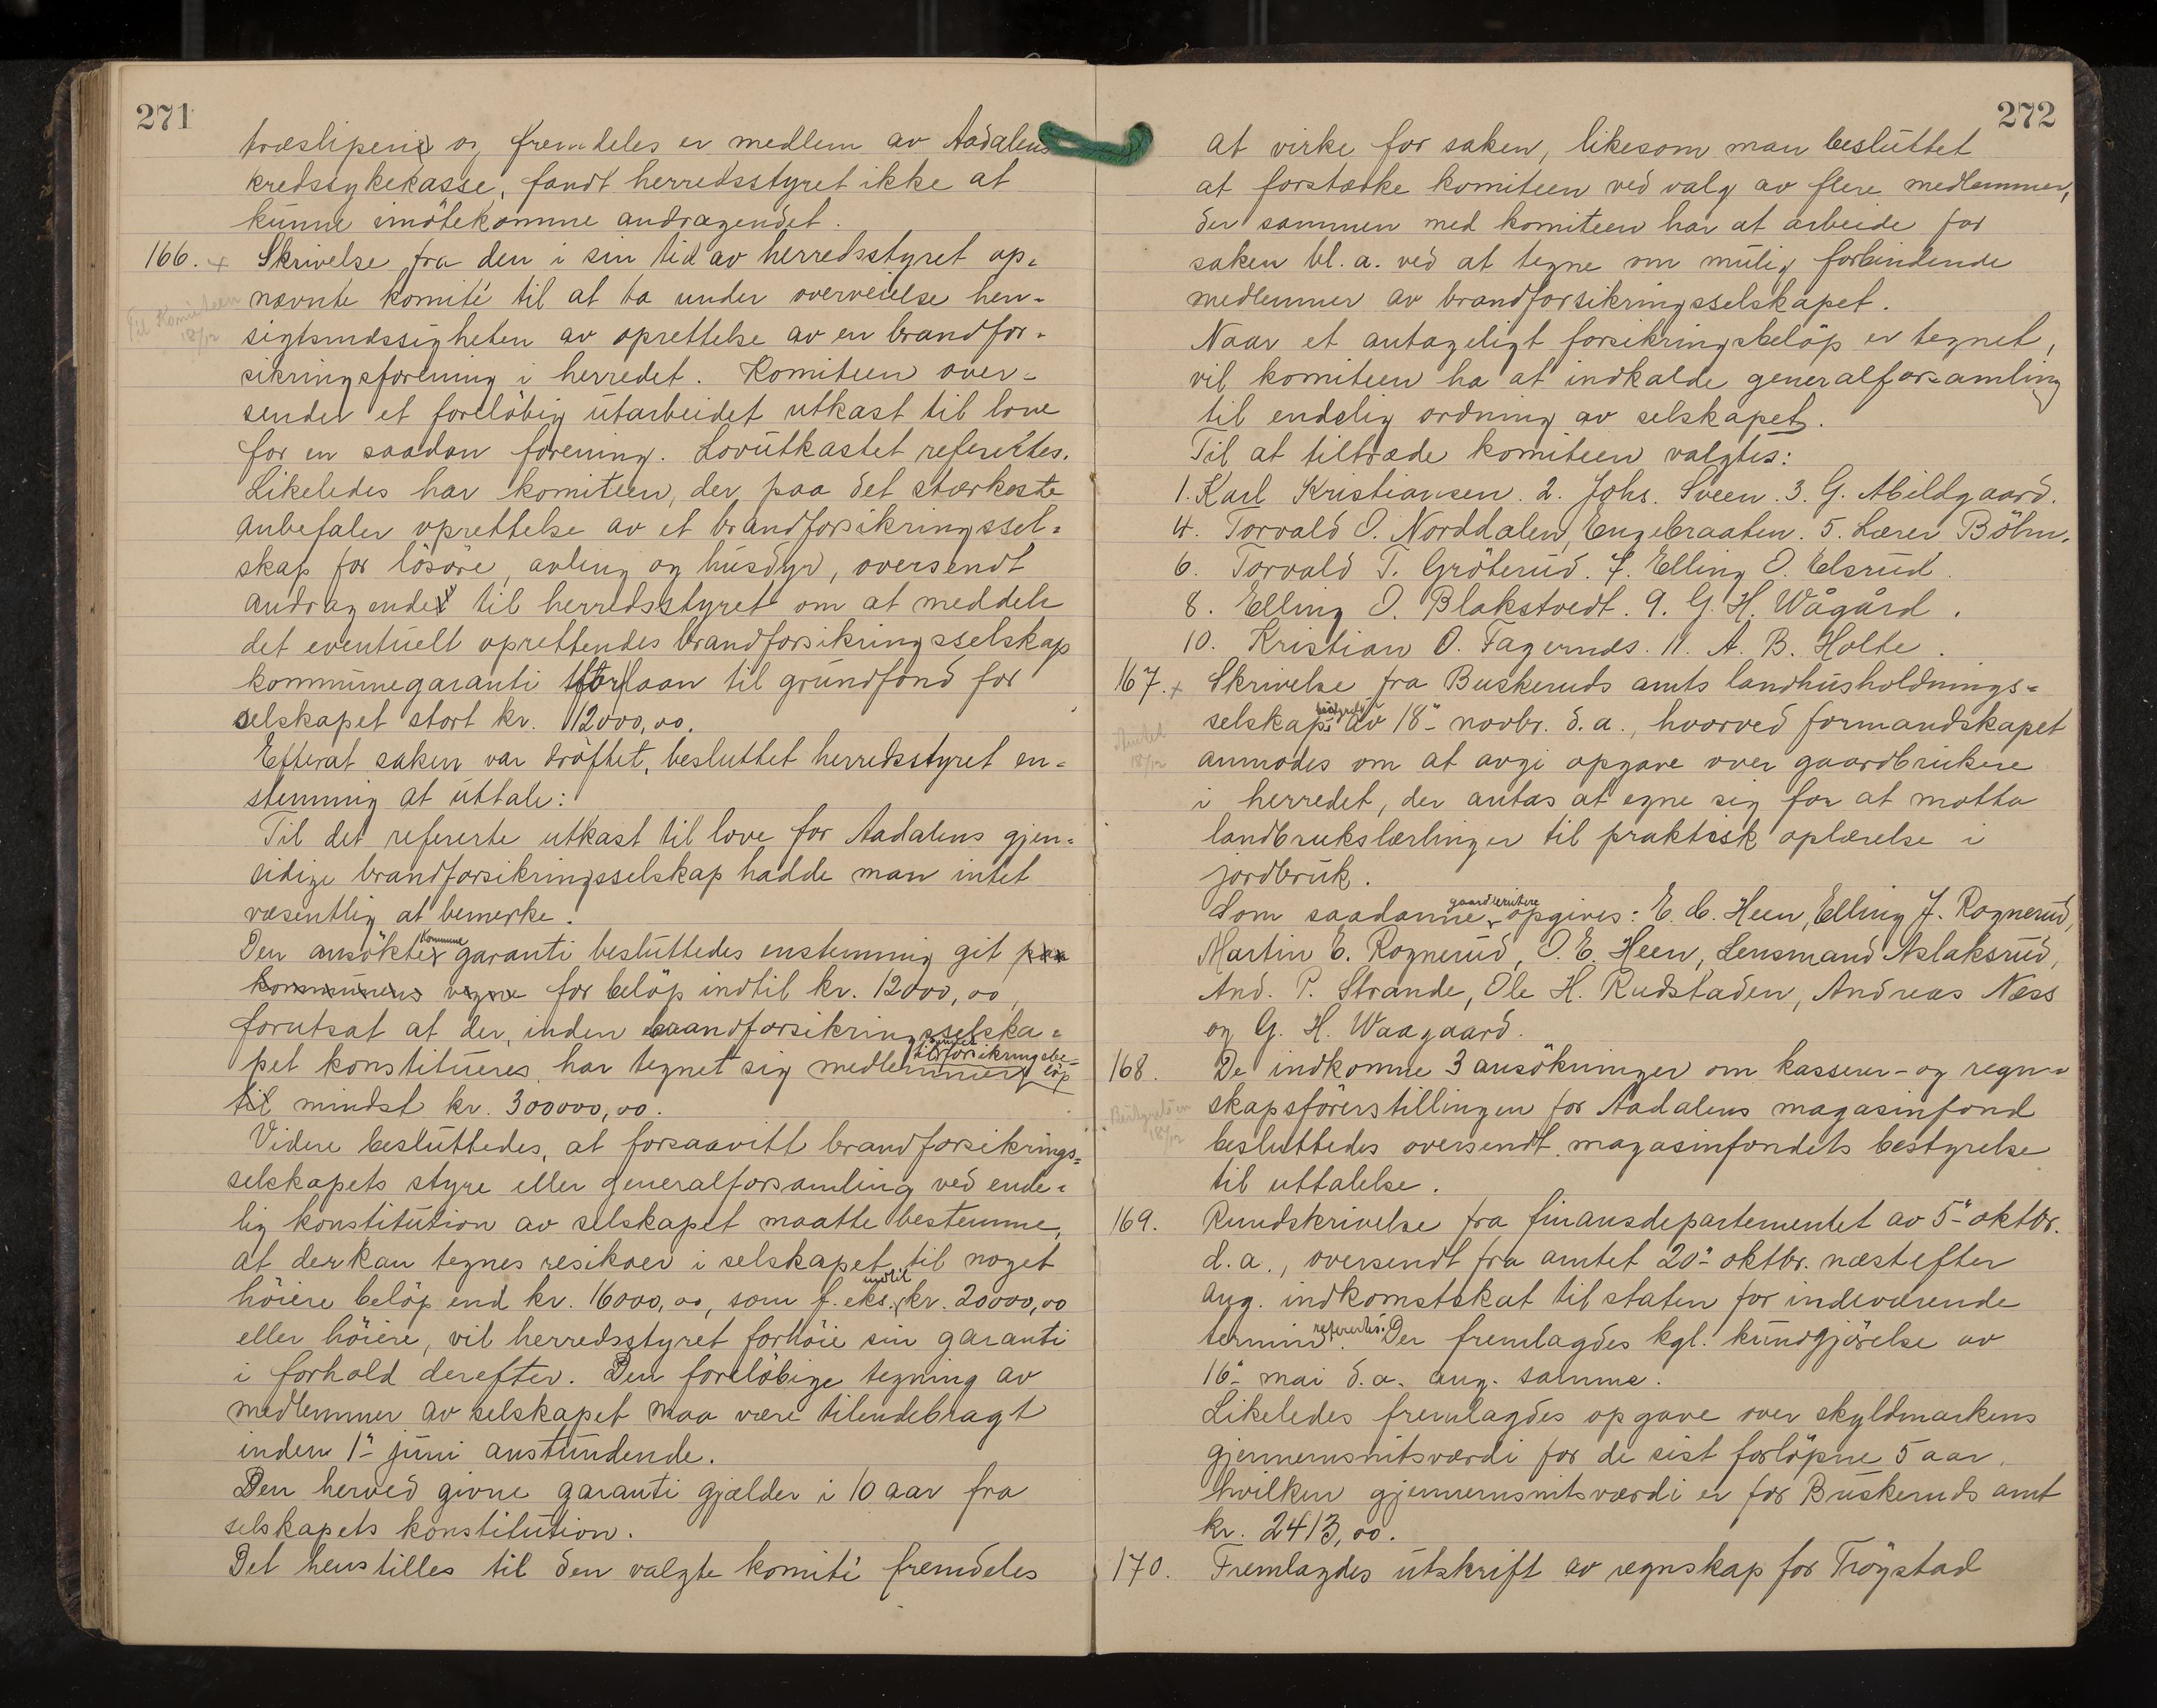 271
træsliperi og fremdeles er medlem av Aadalens
kredssykekasse, fandt herredsstyret ikke at
kunne imötekomme andragendet.
166. x Skrivelse fra den i sin tid av herredsstyret op=
nævnte komité til at ta under overveielse hen-
Til Komiteen
18/12
sigtsmæssigheten av oprettelse av en brandfor-
sikringsforening i herredet. Komiteen over-
sender et foreløbig utarbeidet utkast til love
for en saadan forening. Lovutkastet refertes.
Likeledes har komiteen, der paa det sterkeste
anbefaler oprettelse av et brandforsikringssel=
skap for lösöre, avling og husdyr, oversendt
andragende til herredsstyret om at meddele
det eventuelt oprettendes brandforsikringsselskap
kommunegaranti for laan til grundfond for
selskapet stort kr. 12000,00.
Efterat saken var dröftet, besluttet herredsstyret en=
stemmig at uttale:
Til det refererte utkast til love for Aadalens gjen=
sidige brandforsikringsselskap hadde man intet
væsentlig at bemerke.
Den ansökte kommune garanti besluttedes enstemmig git paa
kommunens vegne for belöp indtil kr. 12000,00,
forutsat at der, inden brandforsikringsselska=
pet konstitueres, har tegnet sig medlemmer
til forsikringsbe=
löp
til mindst kr. 300000,00.
Videre besluttedes, at forsaavitt brandforsikrings=
selskapets styre eller generalforsamling ved ende=
lig konstitution av selskapet maatte bestemme,
at der kan tegnes resikoer i selskapet til noget
höiere belöp end kr. 16000,00, som f. eks. indtil kr. 20000,00
eller höiere, vil herredsstyret forhöie sin garanti
i forhold derefter. Den forelöbige tegning av
medlemmer av selskapet maa være tilendebragt
inden 1" juni anstundende.
Den herved givne garanti gjælder i 10 aar fra
selskapets konstitution.
Det henstilles til den valgte komité fremdeles
272
at virke for saken, likesom man besluttet
at forstærke komiteen ved valg av flere medlemmer,
der sammen med komiteen har at arbeide for
saken bl. a. ved at tegne om mulig forbindende
medlemmer av brandforsikringsselskapet.
Naar et antageligt forsikringsbelöp er tegnet,
vil komiteen ha at indkalde generalforsamling
til endelig ordning av selskapet.
Til at tiltræde komiteen valgtes:
1. Karl Kristiansen. 2. Johs. Sveen. 3. G. Abildgaard.
4. Torvald O. Norddalen, Engebraaten. 5. Lærer Böhn.
6. Torvald T. Gröterud. 7. Elling O. Elsrud.
8. Elling O. Blakstvedt. 9. G. H. Wågård.
10. Kristian O. Fagernæs. 11. A. B. Holte.
167. x Skrivelse fra Buskeruds amts landhusholdnings=
selskaps bestyrelse av 18" novbr. d. a., hvorved formandskapet
Amtet
18/12
anmodes om at avgi opgave over gaardbrukere
i herredet, der antas at egne sig for at motta
landbrukslærlinger til praktisk oplærelse i
jordbruk.
Som saadanne gaardbrukere opgives: E. C. Heen, Elling J. Rognerud,
Martin E. Rognerud, O. E. Heen, Lensmand Aslaksrud,
And. P. Strande, Ole H. Rudstaden, Andreas Næss
og G. H. Waagaard.
168. De indkomne 3 ansökninger om kasserer- og regn=
skapsförerstillingen for Aadalens magasinfond
18/12
besluttedes oversendt magasinfondets bestyrelse
til uttalelse.
169. Rundskrivelse fra finansdepartementet av 5" oktbr.
d. a., oversendt fra amtet 20" oktbr. næstefter
ang. indkomstskat til staten for indeværende
termin refertes. Der fremlagdes kgl. kundgjörelse av
16" mai d. a. ang. samme.
Likeledes fremlagdes opgave over skyldmarkens
gjennemsnitsværdi for de sist forlöpne 5 aar,
hvilken gjennemsnitsværdi er for Buskeruds amt
kr. 2413,00.
170. Fremlagdes utskrift av regnskap for Trögstad